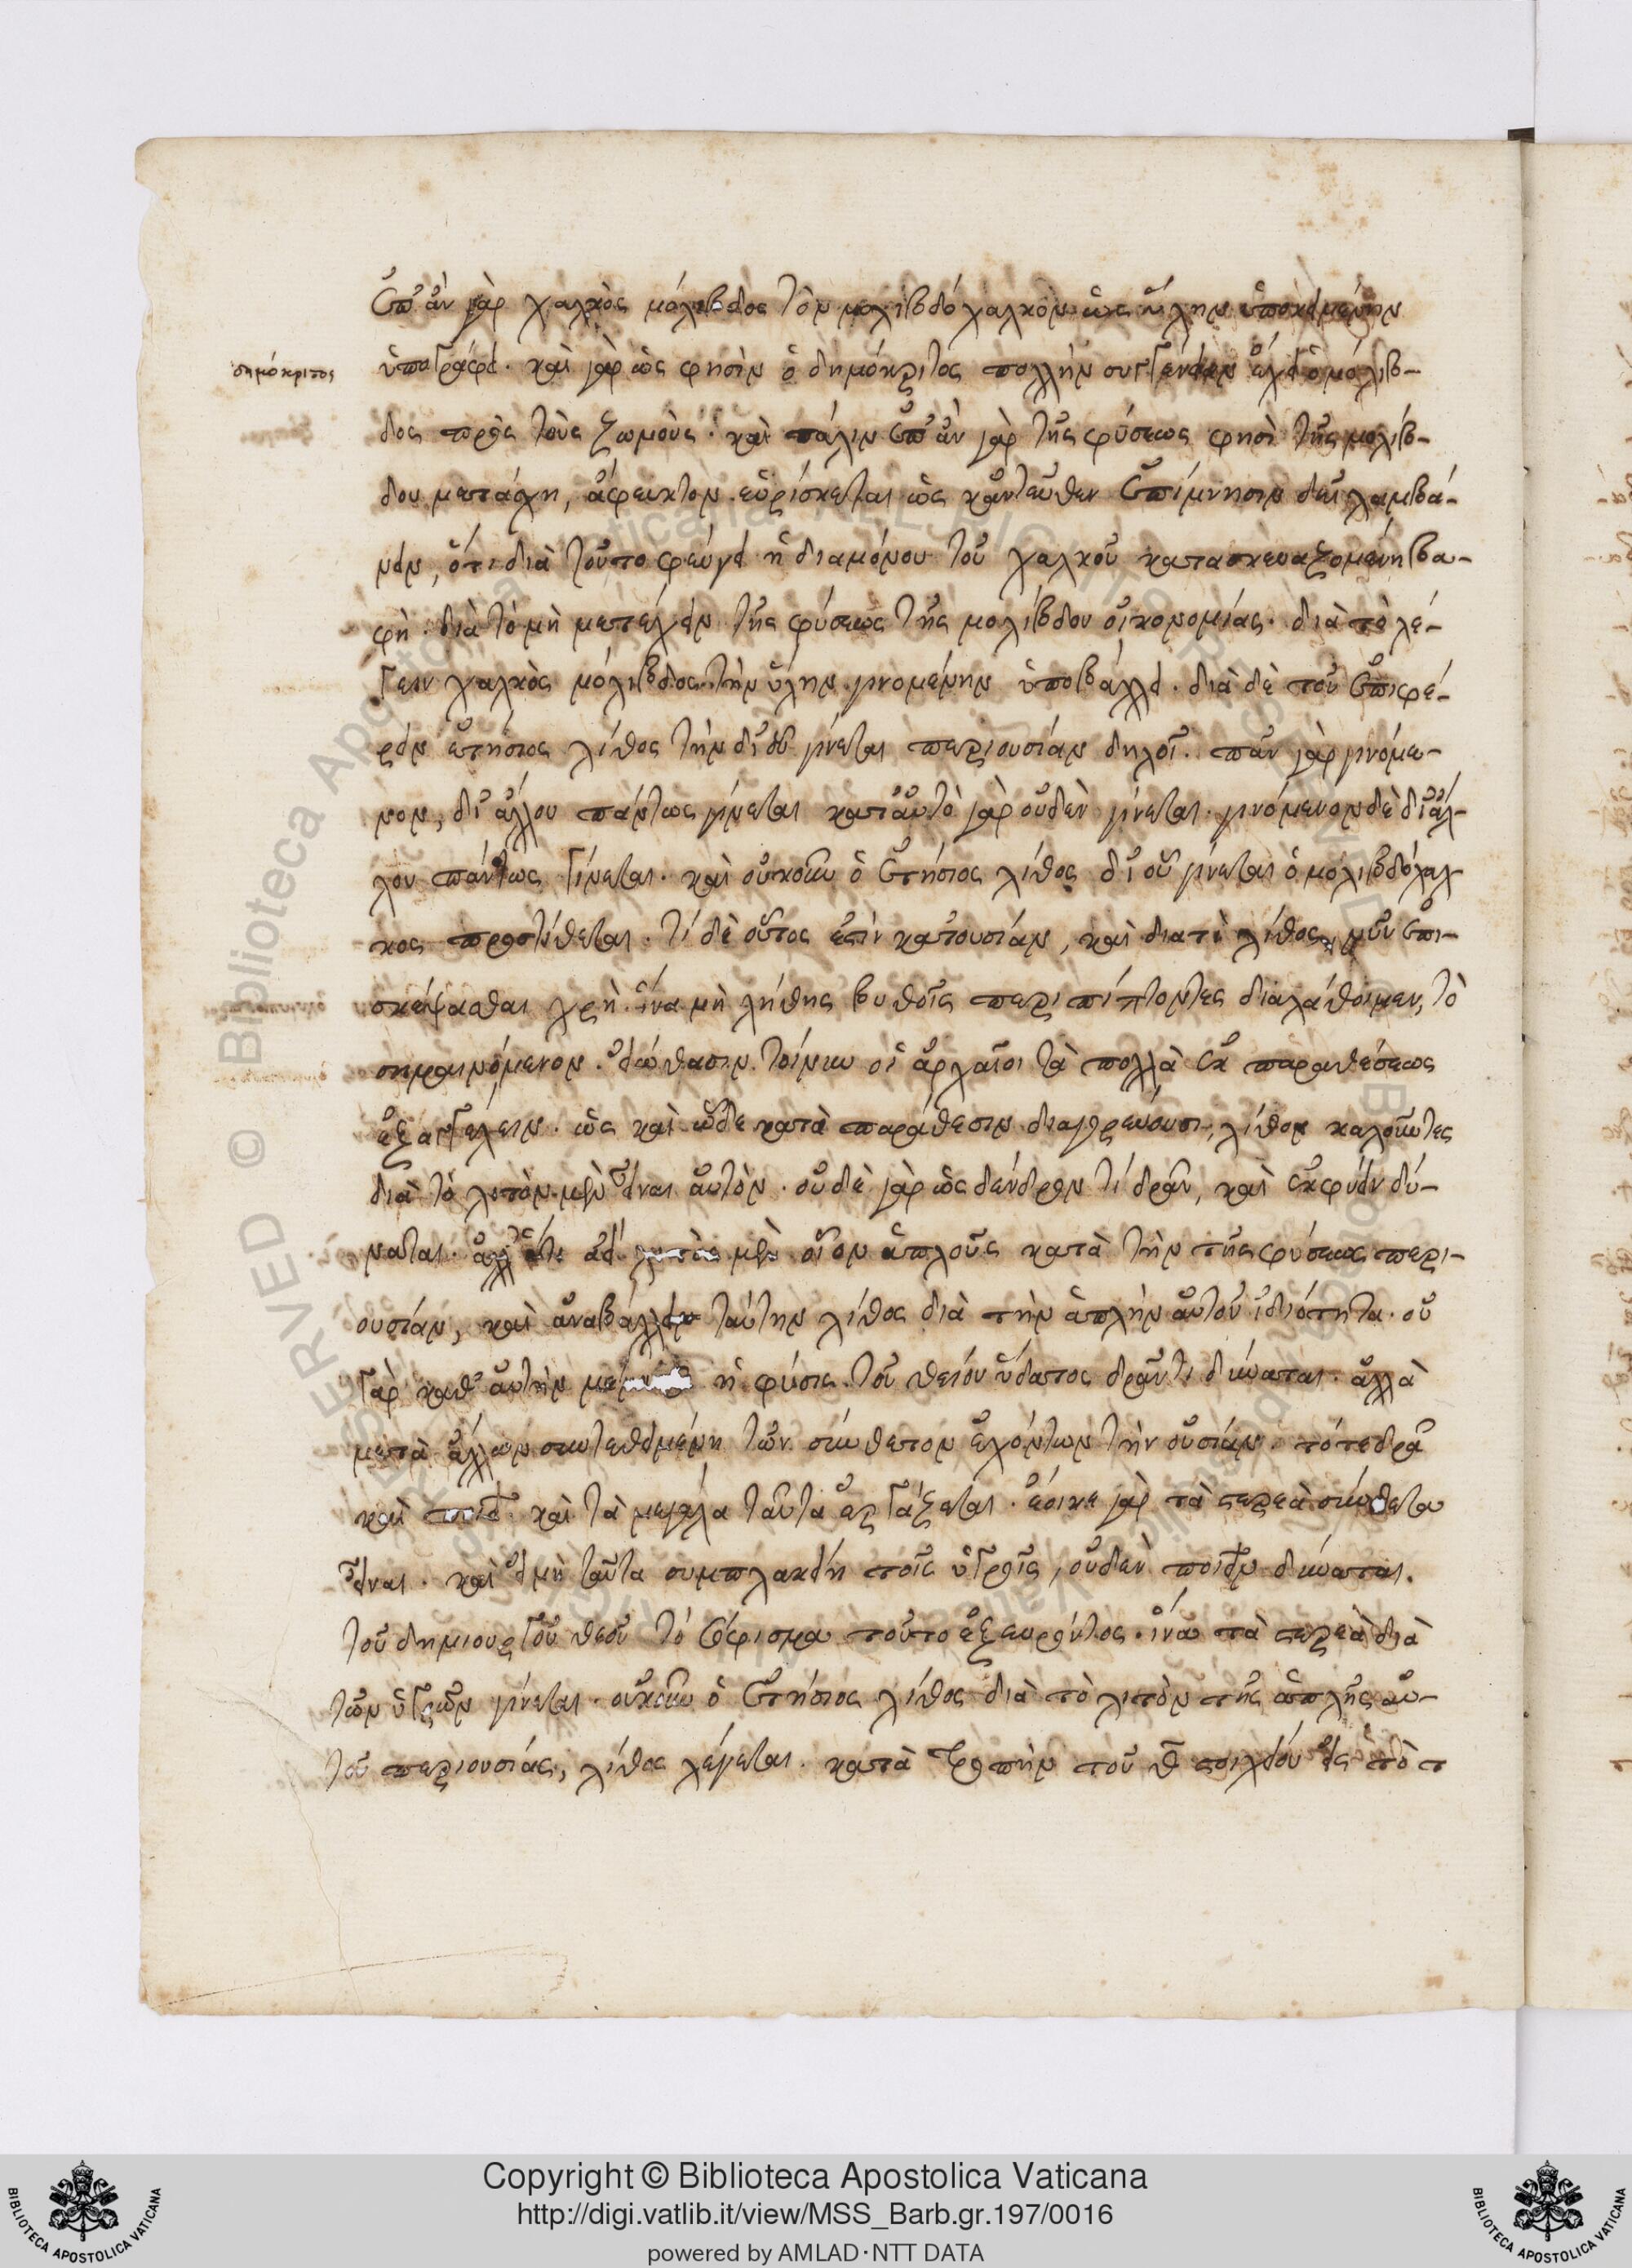 ἐπ' ἂν γὰρ χαλκὸς μόλιβδος τὸν μολιβδόχαλκον ὡς ὕλην ὑποκειμένην
δημόκριτος
ὑπογράφει. καὶ γὰρ ὡς φησὶν ὁ δημόκριτος πολλὴν συγγένειαν ἔχει ὁ μόλιβ-
δος πρὸς τοὺς ζωμούς. καὶ πάλιν ἐπ' ἂν γὰρ τῆς φύσεως φησὶ τῆς μολίβ-
δου μετάσχῃ, ἄφευκτον εὑρίσκεται ὡς κἀντεῦθεν ἐπίμνησιν δεῖ λαμβά-
νειν, ὅτι διὰ τοῦτο φεύγει ἡ διαμόνου τοῦ χαλκοῦ κατασκευαζομένη βα-
φὴ. διὰ τὸ μὴ μετέχειν τῆς φύσεως τῆς μολίβδου οἰκονομίας. διὰ τὸ λέ-
γειν χαλκὸς μόλιβδος τὴν ὕλην γινομένην ὑποβάλλει. διὰ δὲ τοῦ ἐπιφέ-
ρειν ἐτήσιος λίθος τὴν δι' οὗ γίνεται περιουσίαν δηλοῖ. πᾶν γὰρ γινόμε-
νον, δι' ἄλλου πάντως γίνεται κατ' αὐτὸ γὰρ οὐδὲν γίνεται. γινόμενον δὲ δι' ἄλ-
λου πάντως γίνεται. καὶ οὐκοῦν ὁ ἐτήσιος λίθος δι' οὗ γίνεται ὁ μόλιβδόχαλ-
κος προστίθεται. τί δὲ οὗτος ἐστὶν κατουσίαν, καὶ διατί λίθος, νῦν ἐπι-
σκέψασθαι χρή. ἵνα μὴ λήθης βυθοῖς περιπίπτοντες διαλάθοιμεν, τὸ
σημαινόμενον. εἰώθασιν τοίνυν οἱ ἀρχαῖοι τὰ πολλὰ ἐκ παραθέσεως
ἐξαγγέλειν. ὡς καὶ ὧδε κατὰ παράθεσιν διαγορεύουσι, λίθον καλοῦντες
διὰ τὸ λιτὸν μὲν εἶναι αὐτὸν. οὐδὲ γὰρ ὡς δένδρον τί δρᾶν, καὶ ἐκφύειν δύ-
ναται. ἀλλ' ἀεὶ λιτὸς μὲν οἷον ἁπλοῦς κατὰ τὴν τῆς φύσεως περι-
ουσίαν, καὶ ἀναβάλλειν ταύτην λίθος διὰ τὴν ἁπλὴν αὐτοῦ ἰδιότητα. οὐ
γὰρ καθ' αὑτὴν ἡ φύσις τοῦ θείου ὕδατος δρᾶν τι δύναται. ἀλλὰ
μετὰ ἄλλων συντεθειμένη τῶν σύνθετον ἐχόντων τὴν οὐσίαν. τότε δρᾶ
καὶ ποιεῖ καὶ τὰ μεγάλα ταῦτα ἐργάζεται. ἔοικε γὰρ τὰ στερεὰ σύνθετα
εἶναι. καὶ εἰ μὴ ταῦτα συμπλακείη τοῖς ὑγροῖς, οὐδὲν ποιεῖν δύναται.
τοῦ δημιουργοῦ θεοῦ τὸ ἐφέρισμα τοῦτο ἐξευρόντος. ἵνα τὰ στερεὰ διὰ
τῶν ὑγρῶν γίνεται. οὐκοῦν ὁ ἐτήσιος λίθος διὰ τὸ λιτὸν τῆς ἁπλῆς αὐ-
τοῦ περιουσίας, λίθος λέγεται. κατὰ τροπὴν τοῦ θ στοιχείου εἰς τὸ τ